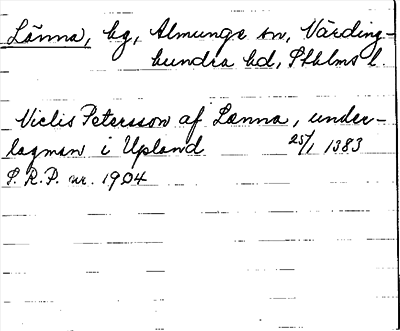 Länna, by, Almunge sn, Närding-
hundra hd, Sthlms l.
Niclis Petersson af Lænna, under-
lagman i Upland 25/1 1383
S.R.P. nr. 1904